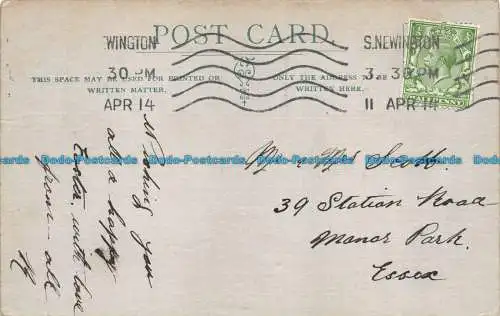 POST CARD.
WINGTON
30 PM
APR 14
S.NEWINGTON
3. 30 PM
11 APR 14
THIS SPACE MAY BE USED FOR PRINTED OR
WRITTEN MATTER.
ONLY THE ADDRESS TO BE
WRITTEN HERE.
Wishing you
all a happy
Easter, with love
from all
Mr & Mrs Scott.
39 Station Road
Manor Park.
Essex
Dodo-Postcards.com Dodo-Postcards.com Dodo-Postcards.com Dodo-Postcards.com Dodo-Postcards.com